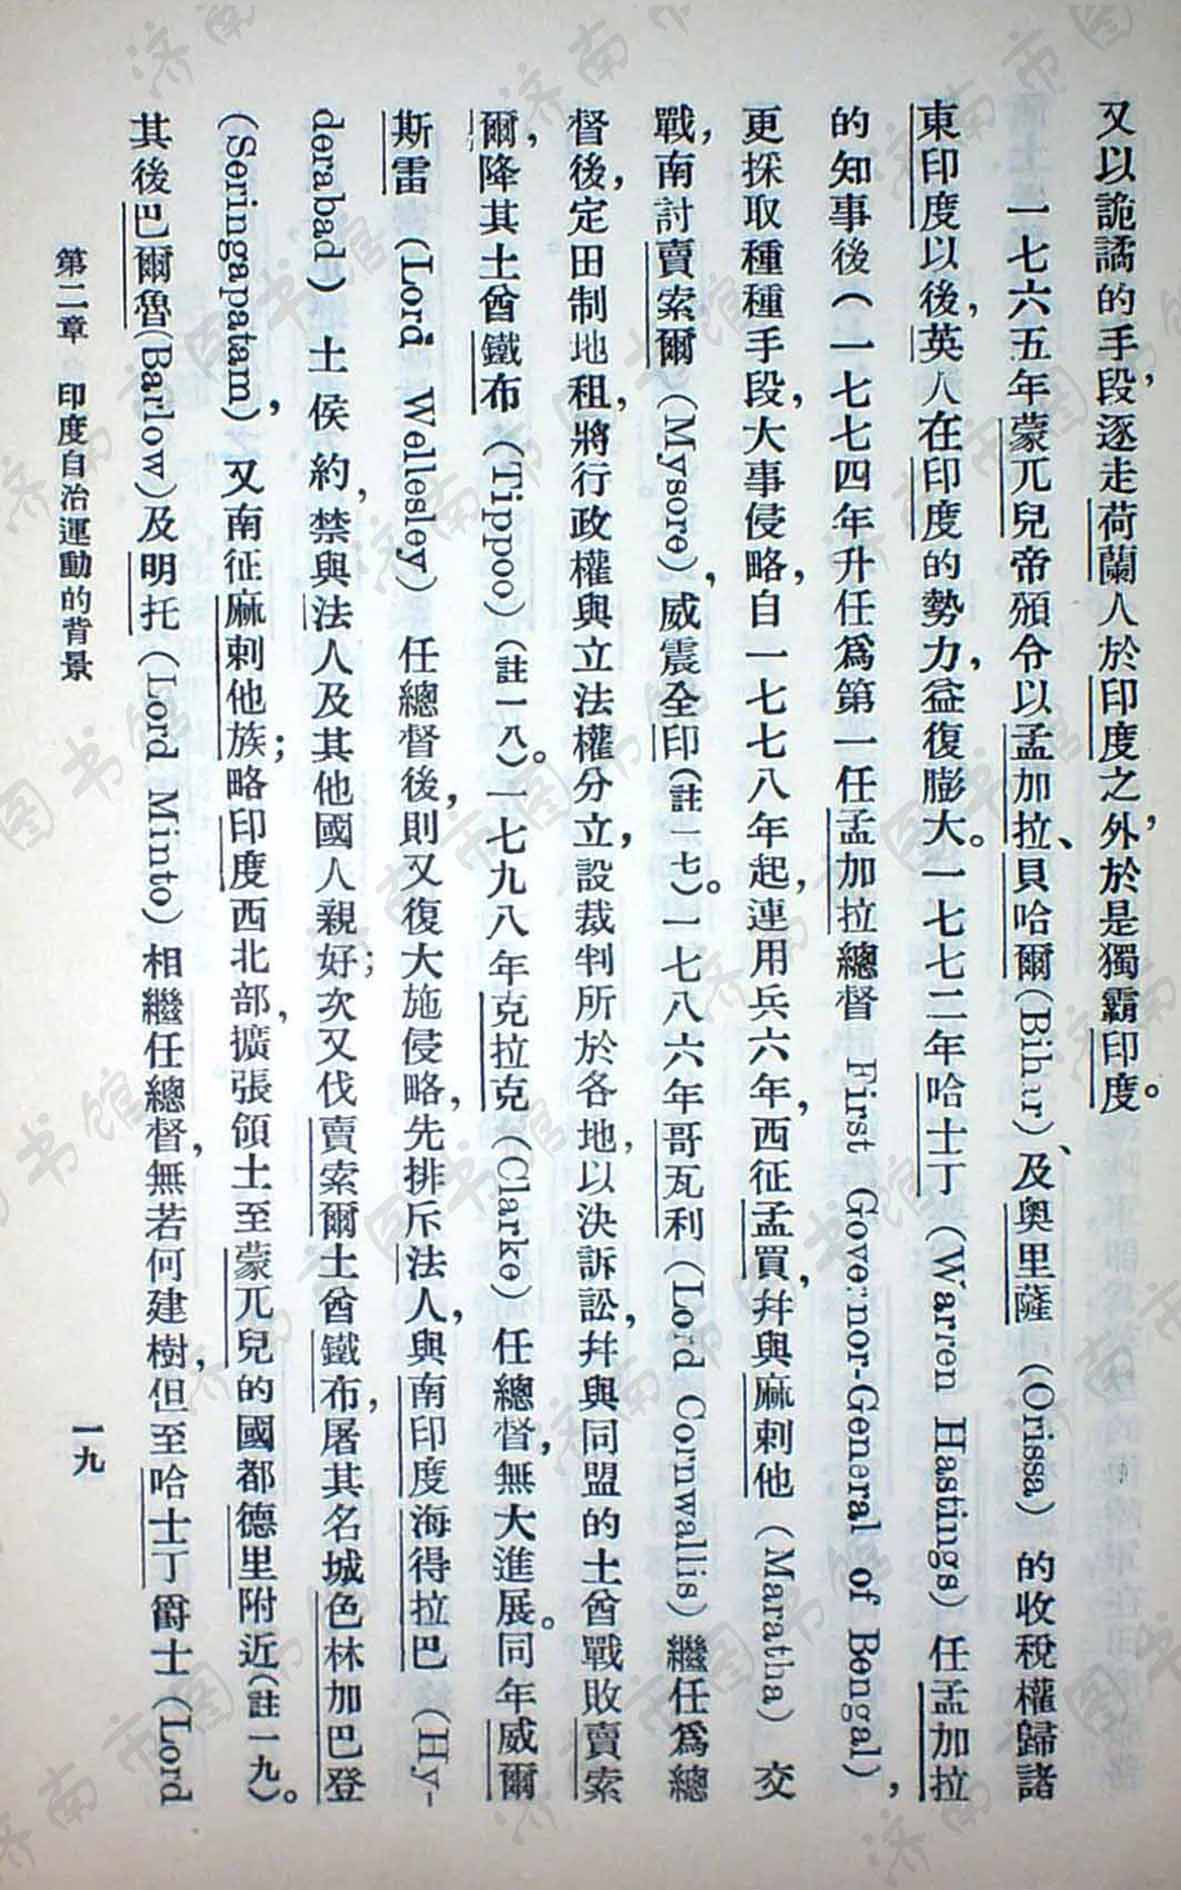 又以詭譎的手段，逐走荷蘭人於印度之外，於是獨霸印度。
一七六五年蒙兀兒帝頒令以孟加拉、貝哈爾(Bihar)、及奧里薩 (Orissa) 的收稅權歸諸
東印度以後，英人在印度的勢力，益復膨大。一七七二年哈士丁 (Warren Hastings) 任孟加拉
的知事後(一七七四年升任爲第一任孟加拉總督 First Governor-General of Bengal)，
更採取種種手段，大事侵略，自一七七八年起，連用兵六年，西征孟買，幷與麻剌他 (Maratha) 交
戰，南討賣索爾 (Mysore)，威震全印(註一七)。一七八六年哥瓦利 (Lord Cornwallis) 繼任爲總
督後，定田制地租，將行政權與立法權分立，設裁判所於各地，以決訴訟，幷與同盟的土酋戰敗賣索
爾，降其土酋鐵布 (Tippoo) (註一八)。一七九八年克拉克 (Clarke) 任總督，無大進展。同年威爾
斯雷 (Lord Wellesley) 任總督後，則又復大施侵略，先排斥法人，與南印度海得拉巴 (Hy-
derabad) 土侯約，禁與法人及其他國人親好；次又伐賣索爾土酋鐵布，屠其名城色林加巴登
(Seringapatam)，又南征麻剌他族；略印度西北部，擴張領土至蒙兀兒的國都德里附近(註一九)。
其後巴爾魯(Barlow)及明托 (Lord Minto) 相繼任總督，無若何建樹，但至哈士丁爵士 (Lord
第二章 印度自治運動的背景
一九
济南市图书馆